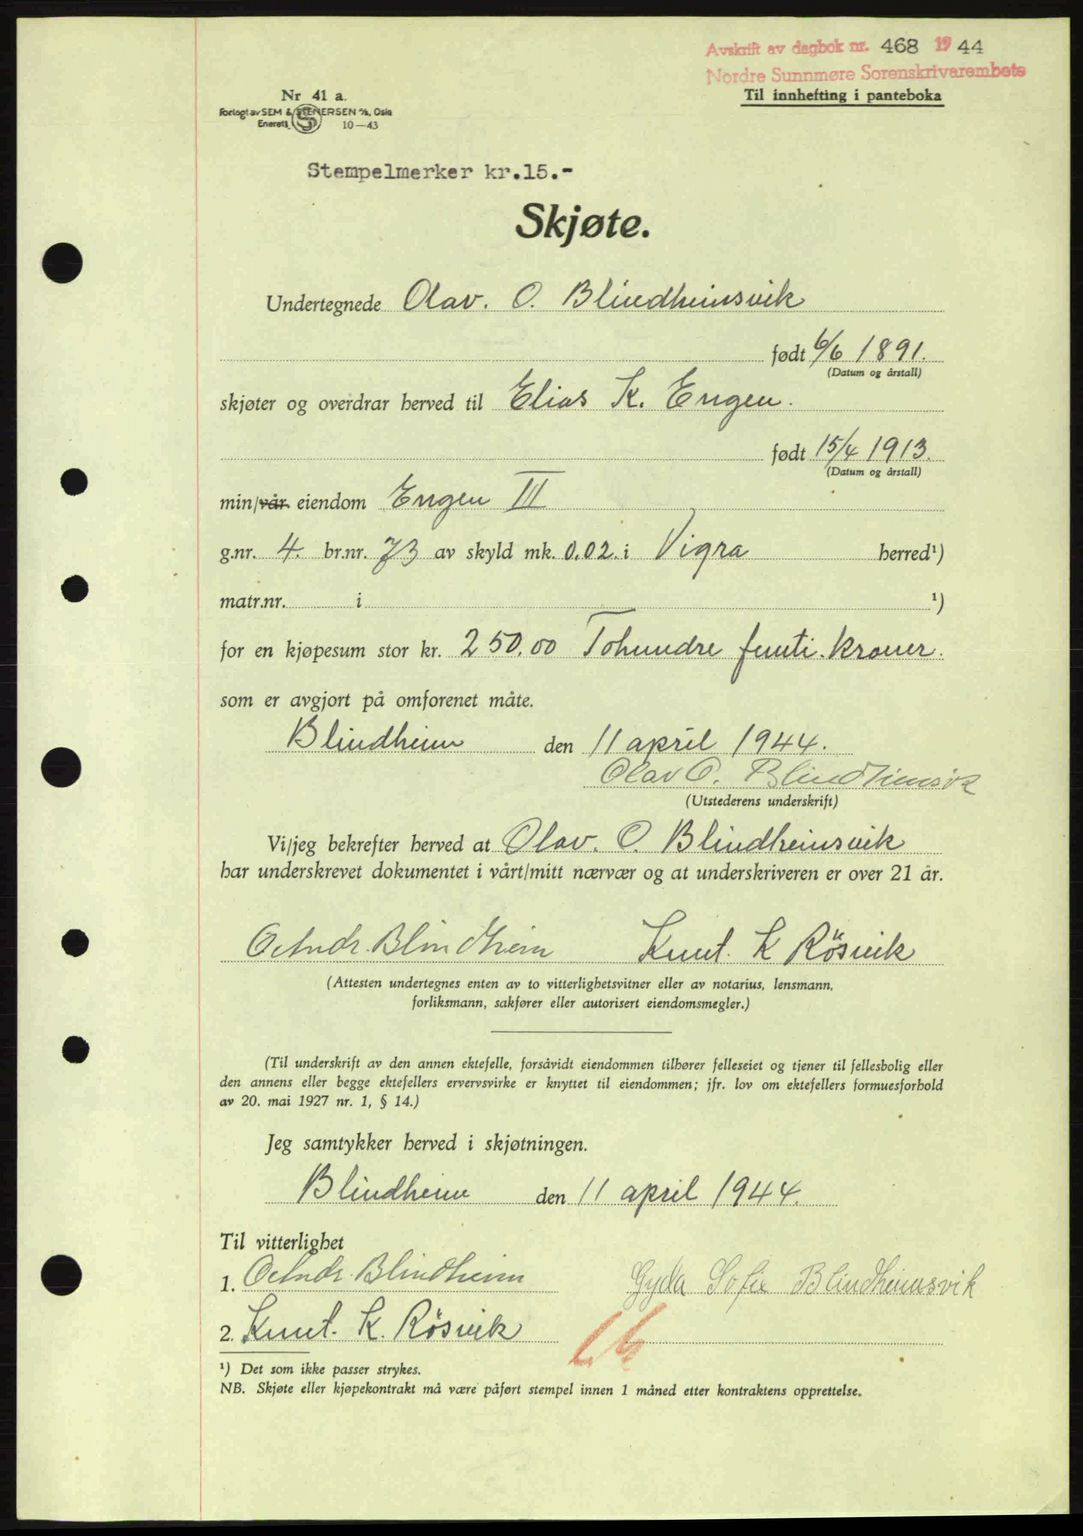 Avskrift av dagbok nr. 468 1944
Nordre Sunnmøre Sorenskrivarembete
Til innhefting i panteboka
Nr 41 a.
Forlagt av SEM & STENERSEN A/S, Oslo
Enerett 10-43
Stempelmerker kr.15.-
Skjøte.
Undertegnede Olav. O. Blindheimsvik
født 6/6 1891.
(Datum og årstall)
skjøter og overdrar herved til Elias K. Engen.
født 15/4 1913.
(Datum og årstall)
min/vår eiendom Engen III
g.nr. 4. br.nr. 73 av skyld mk. 0.02. i Vigra herred¹)
matr.nr. i ¹)
for en kjøpesum stor kr. 250.00 Tohundre femti. kroner.
som er avgjort på omforenet måte.
Blindheim den 11 april 1944.
Olav O. Blindheimsvik
(Utstederens underskrift)
Vi/jeg bekrefter herved at Olav. O. Blindheimsvik
har underskrevet dokumentet i vårt/mitt nærvær og at underskriveren er over 21 år.
Blindheim Knut. K Røsvik
(Attesten undertegnes enten av to vitterlighetsvitner eller av notarius, lensmann,
forliksmann, sakfører eller autorisert eiendomsmegler.)
(Til underskrift av den annen ektefelle, forsåvidt eiendommen tilhører felleseiet og tjener til fellesbolig eller
den annens eller begge ektefellers ervervsvirke er knyttet til eiendommen; jfr. lov om ektefellers formuesforhold
av 20. mai 1927 nr. 1, § 14.)
Jeg samtykker herved i skjøtningen.
Blindheim den 11 april 1944.
Til vitterlighet
1. Blindheim Gyda Sofie Blindheimsvik
2. Knut. K. Røsvik
¹) Det som ikke passer strykes.
NB. Skjøte eller kjøpekontrakt må være påført stempel innen 1 måned etter kontraktens opprettelse.